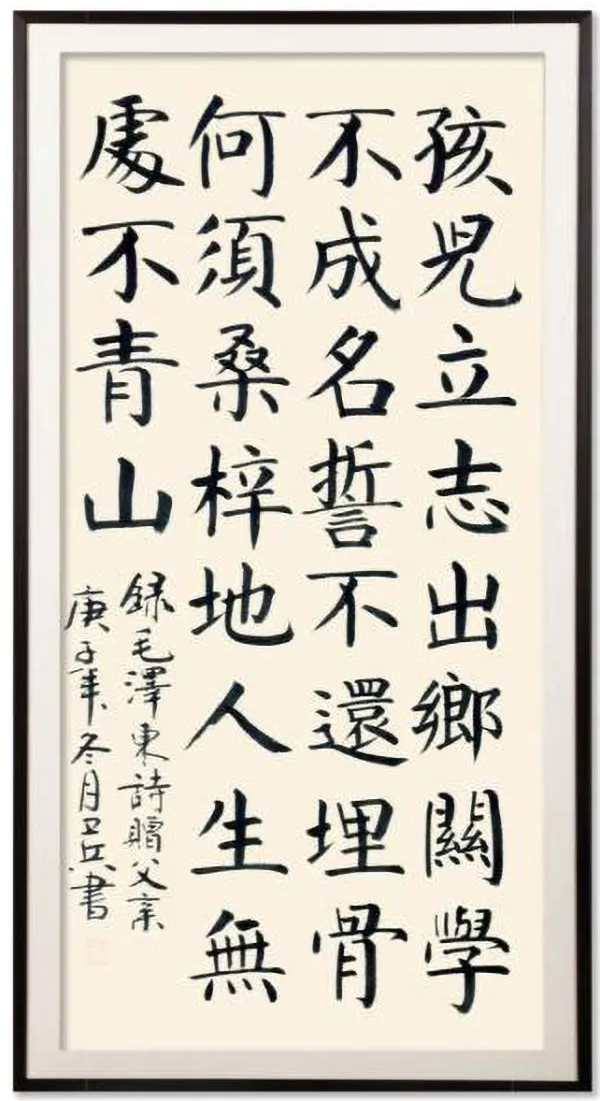 孩兒立志出鄉關學
不成名誓不還埋骨
何須桑梓地人生無
處不青山
録毛澤東詩贈父亲
庚子年冬月卫兵書